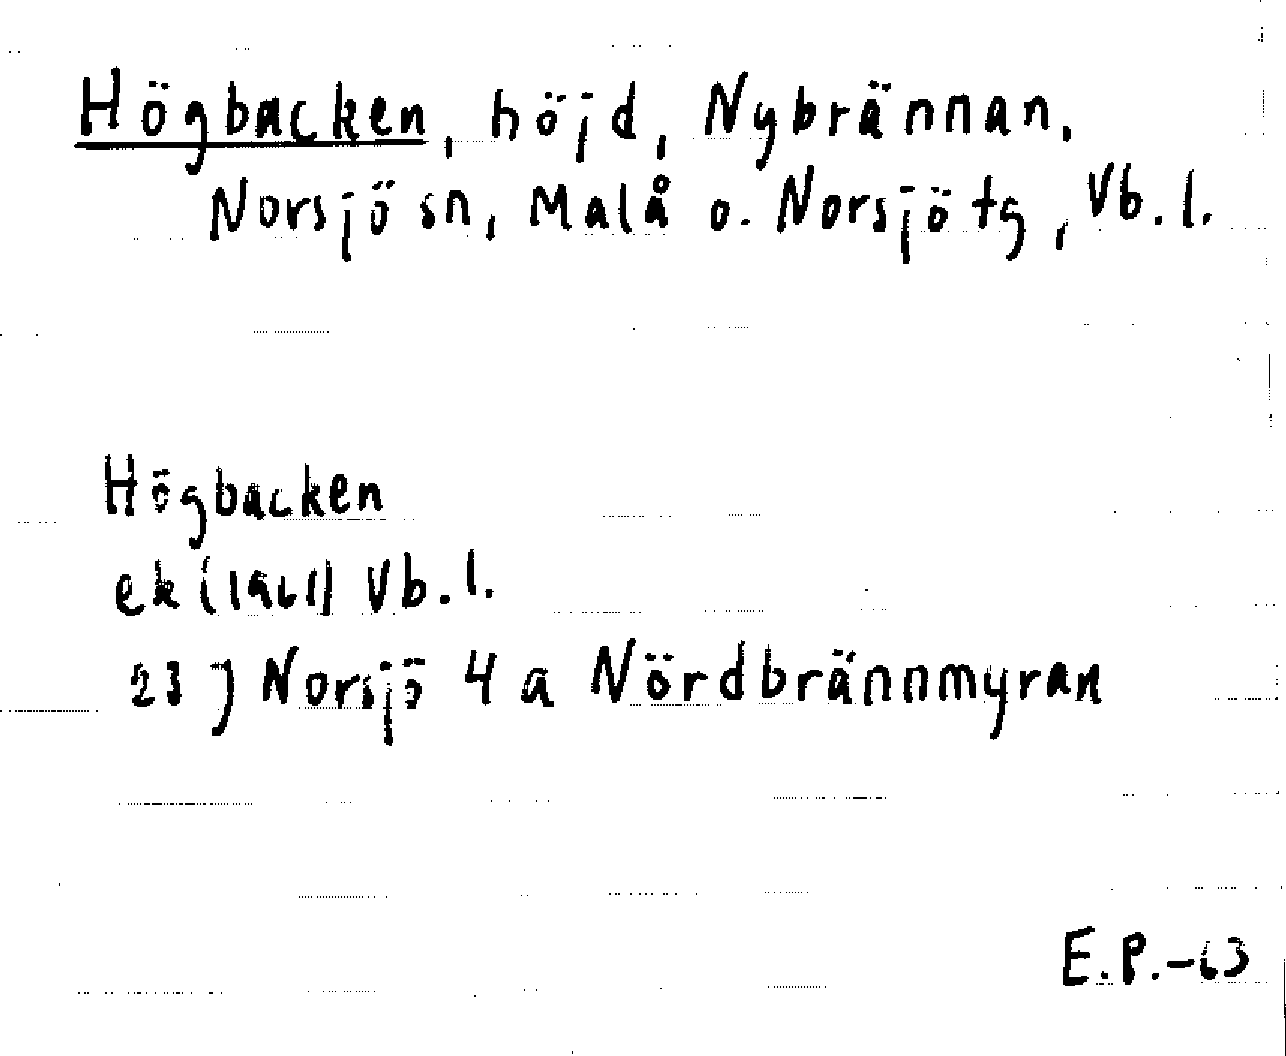 Högbacken, höjd, Nybrännan,
Norsjö sn, Malå o. Norsjö tg, Vb. l.
Högbacken
ek (1961) Vb. l.
23 J Norsjö 4 a Nördbrännmyran
E.P.-63